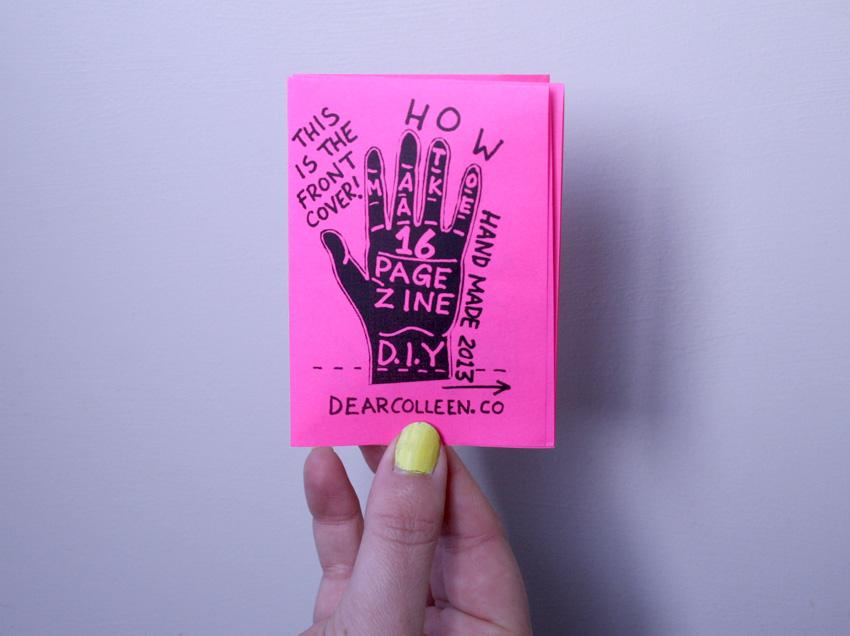 THIS
IS THE
FRONT
COVER!
HOW
TO
MAKE
A
16
PAGE
ZINE
D.I.Y
HAND MADE 2013
DEARCOLLEEN.CO